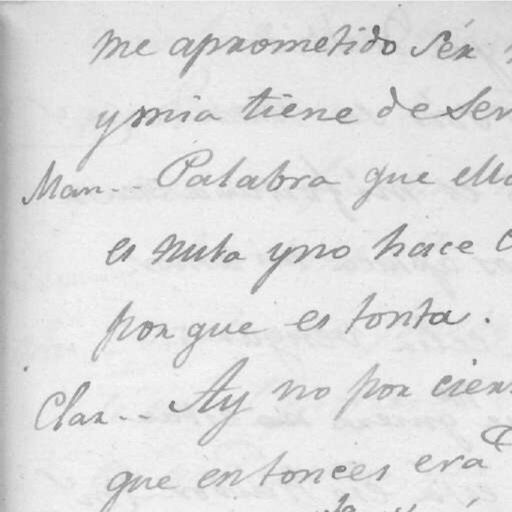 me aprometido sér
y mia tiene de ser
Man.. Palabra que ella
es nula y no hace
por que es tonta.
Clar.. Ay no por cier
que entonces era